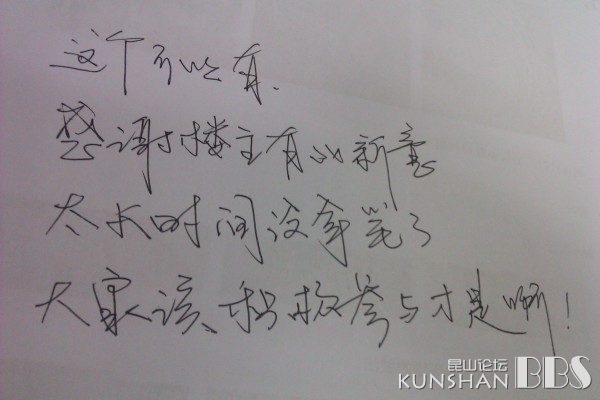 这个可以有.
感谢楼主有此新意
太长时间没拿笔了
大家该、积极参与才是啊!
昆山论坛
KUNSHAN BBS